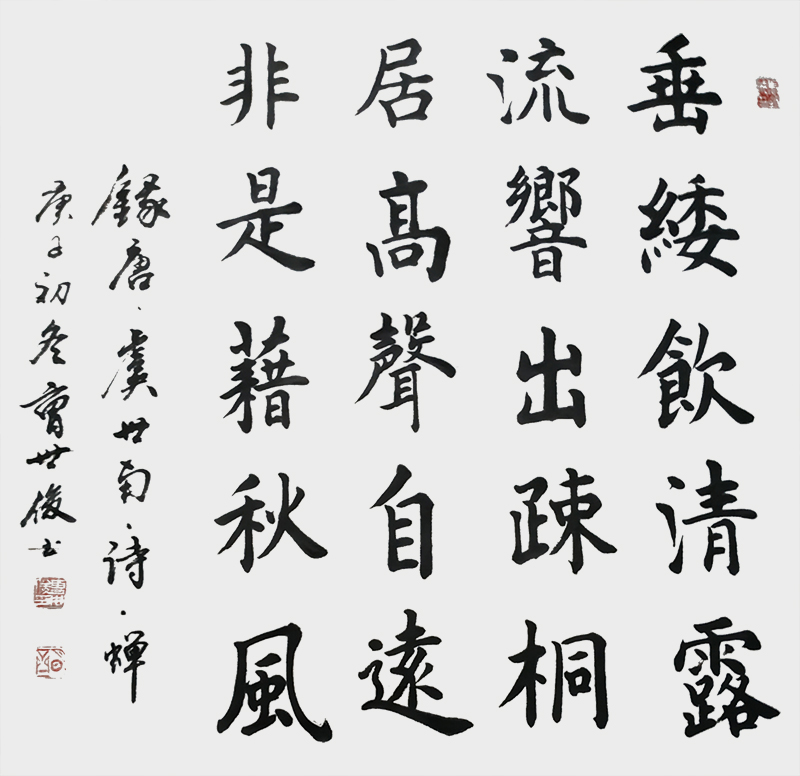 垂緌飲清露
流響出疎桐
居高聲自遠
非是藉秋風
錄唐、虞世南、詩、蝉
庚子初冬曹世俊书